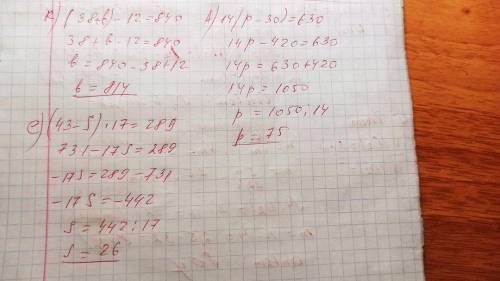 к) (38+b)-12=840
38+b-12=840
b=840-38+12
b=814
д) 14(p-30)=630
14p-420=630
14p=630+420
14p=1050
p=1050:14
p=75
е) (43-s)·17=289
731-17s=289
-17s=289-731
-17s=-442
s=442:17
s=26